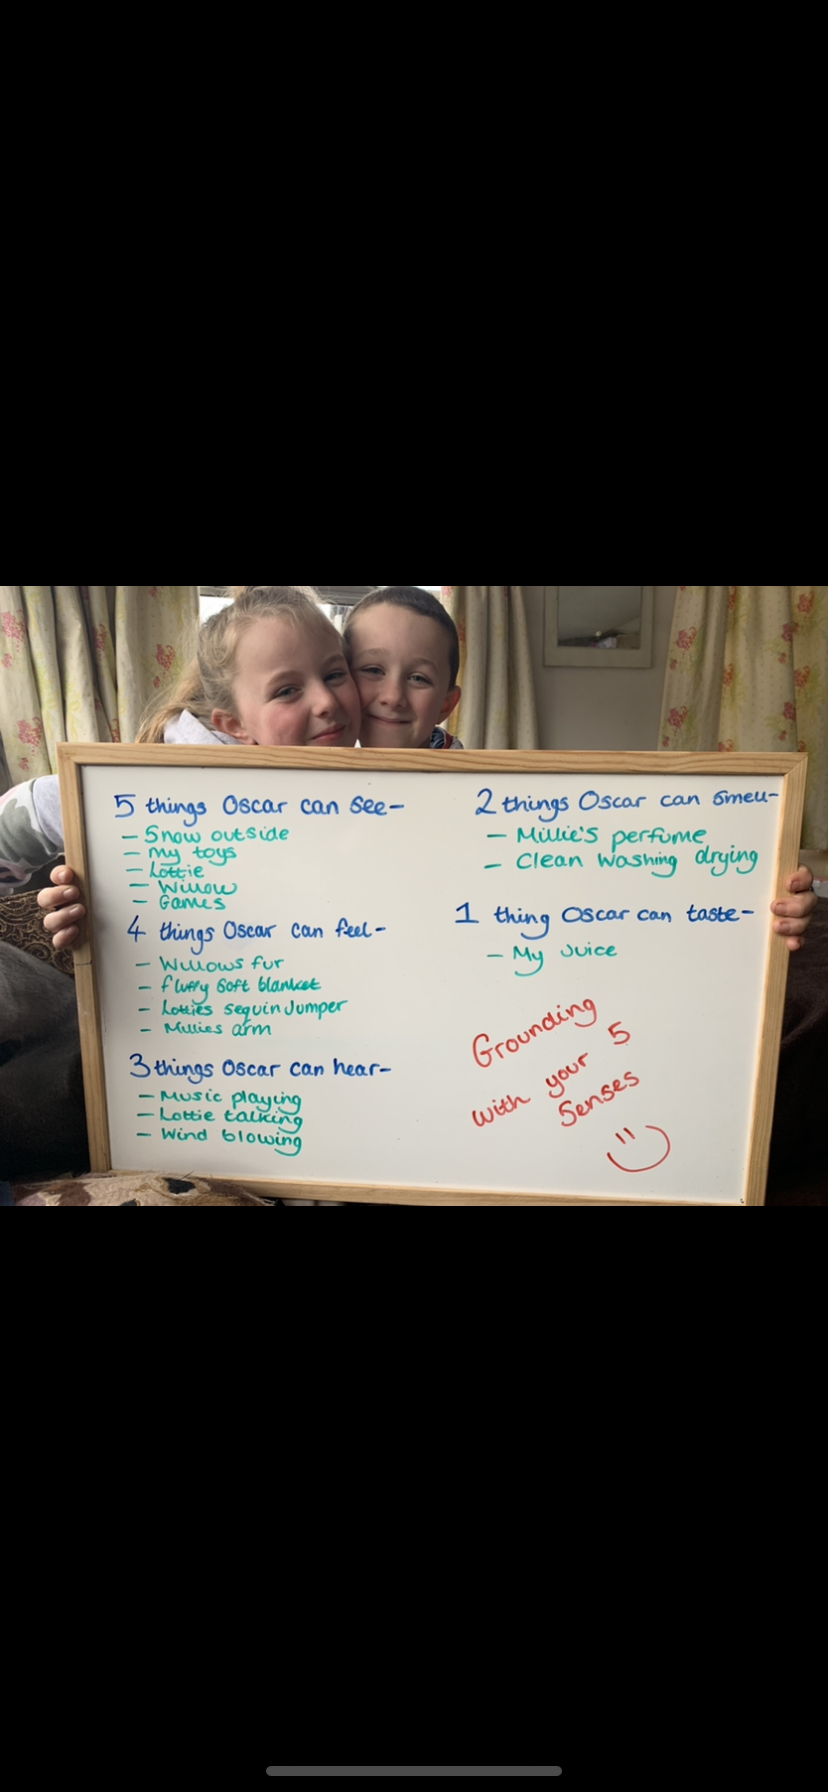 5 things Oscar can see-
- Snow outside
- my toys
- Lottie
- Willow
- Games
4 things Oscar can feel-
- Willows fur
- fluffy soft blanket
- Lotties sequin Jumper
- Millies arm
3 things Oscar can hear-
- Music playing
- Lottie talking
- Wind blowing
2 things Oscar can smell-
- Millie's perfume
- Clean Washing drying
1 thing Oscar can taste-
- My Juice
Grounding
with your 5
Senses